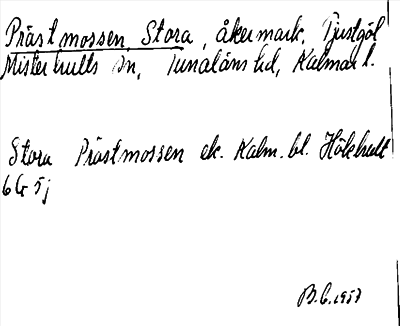 Prästmossen, Stora, åkermark, Tjustgöl
Misterhults sn, Tunaläns hd, Kalmar l.
Stora Prästmossen ek. Kalm. bl. Hökhult
6G 5j
B.C. 1957